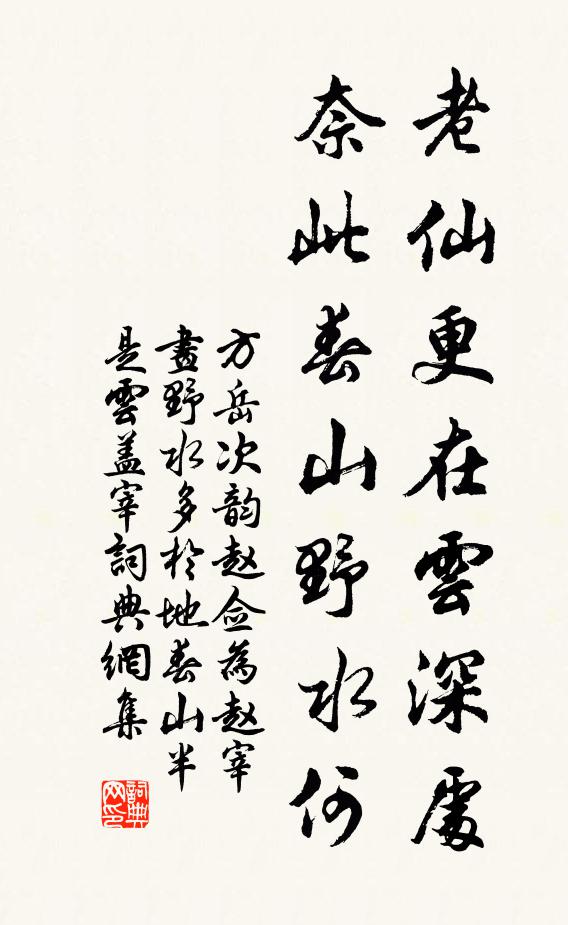 老仙更在雲深處
奈此春山野水何
方岳次韵赵佥為赵宰
畫野水多於地春山半
是雲盖宰詞典網集
詞典网印